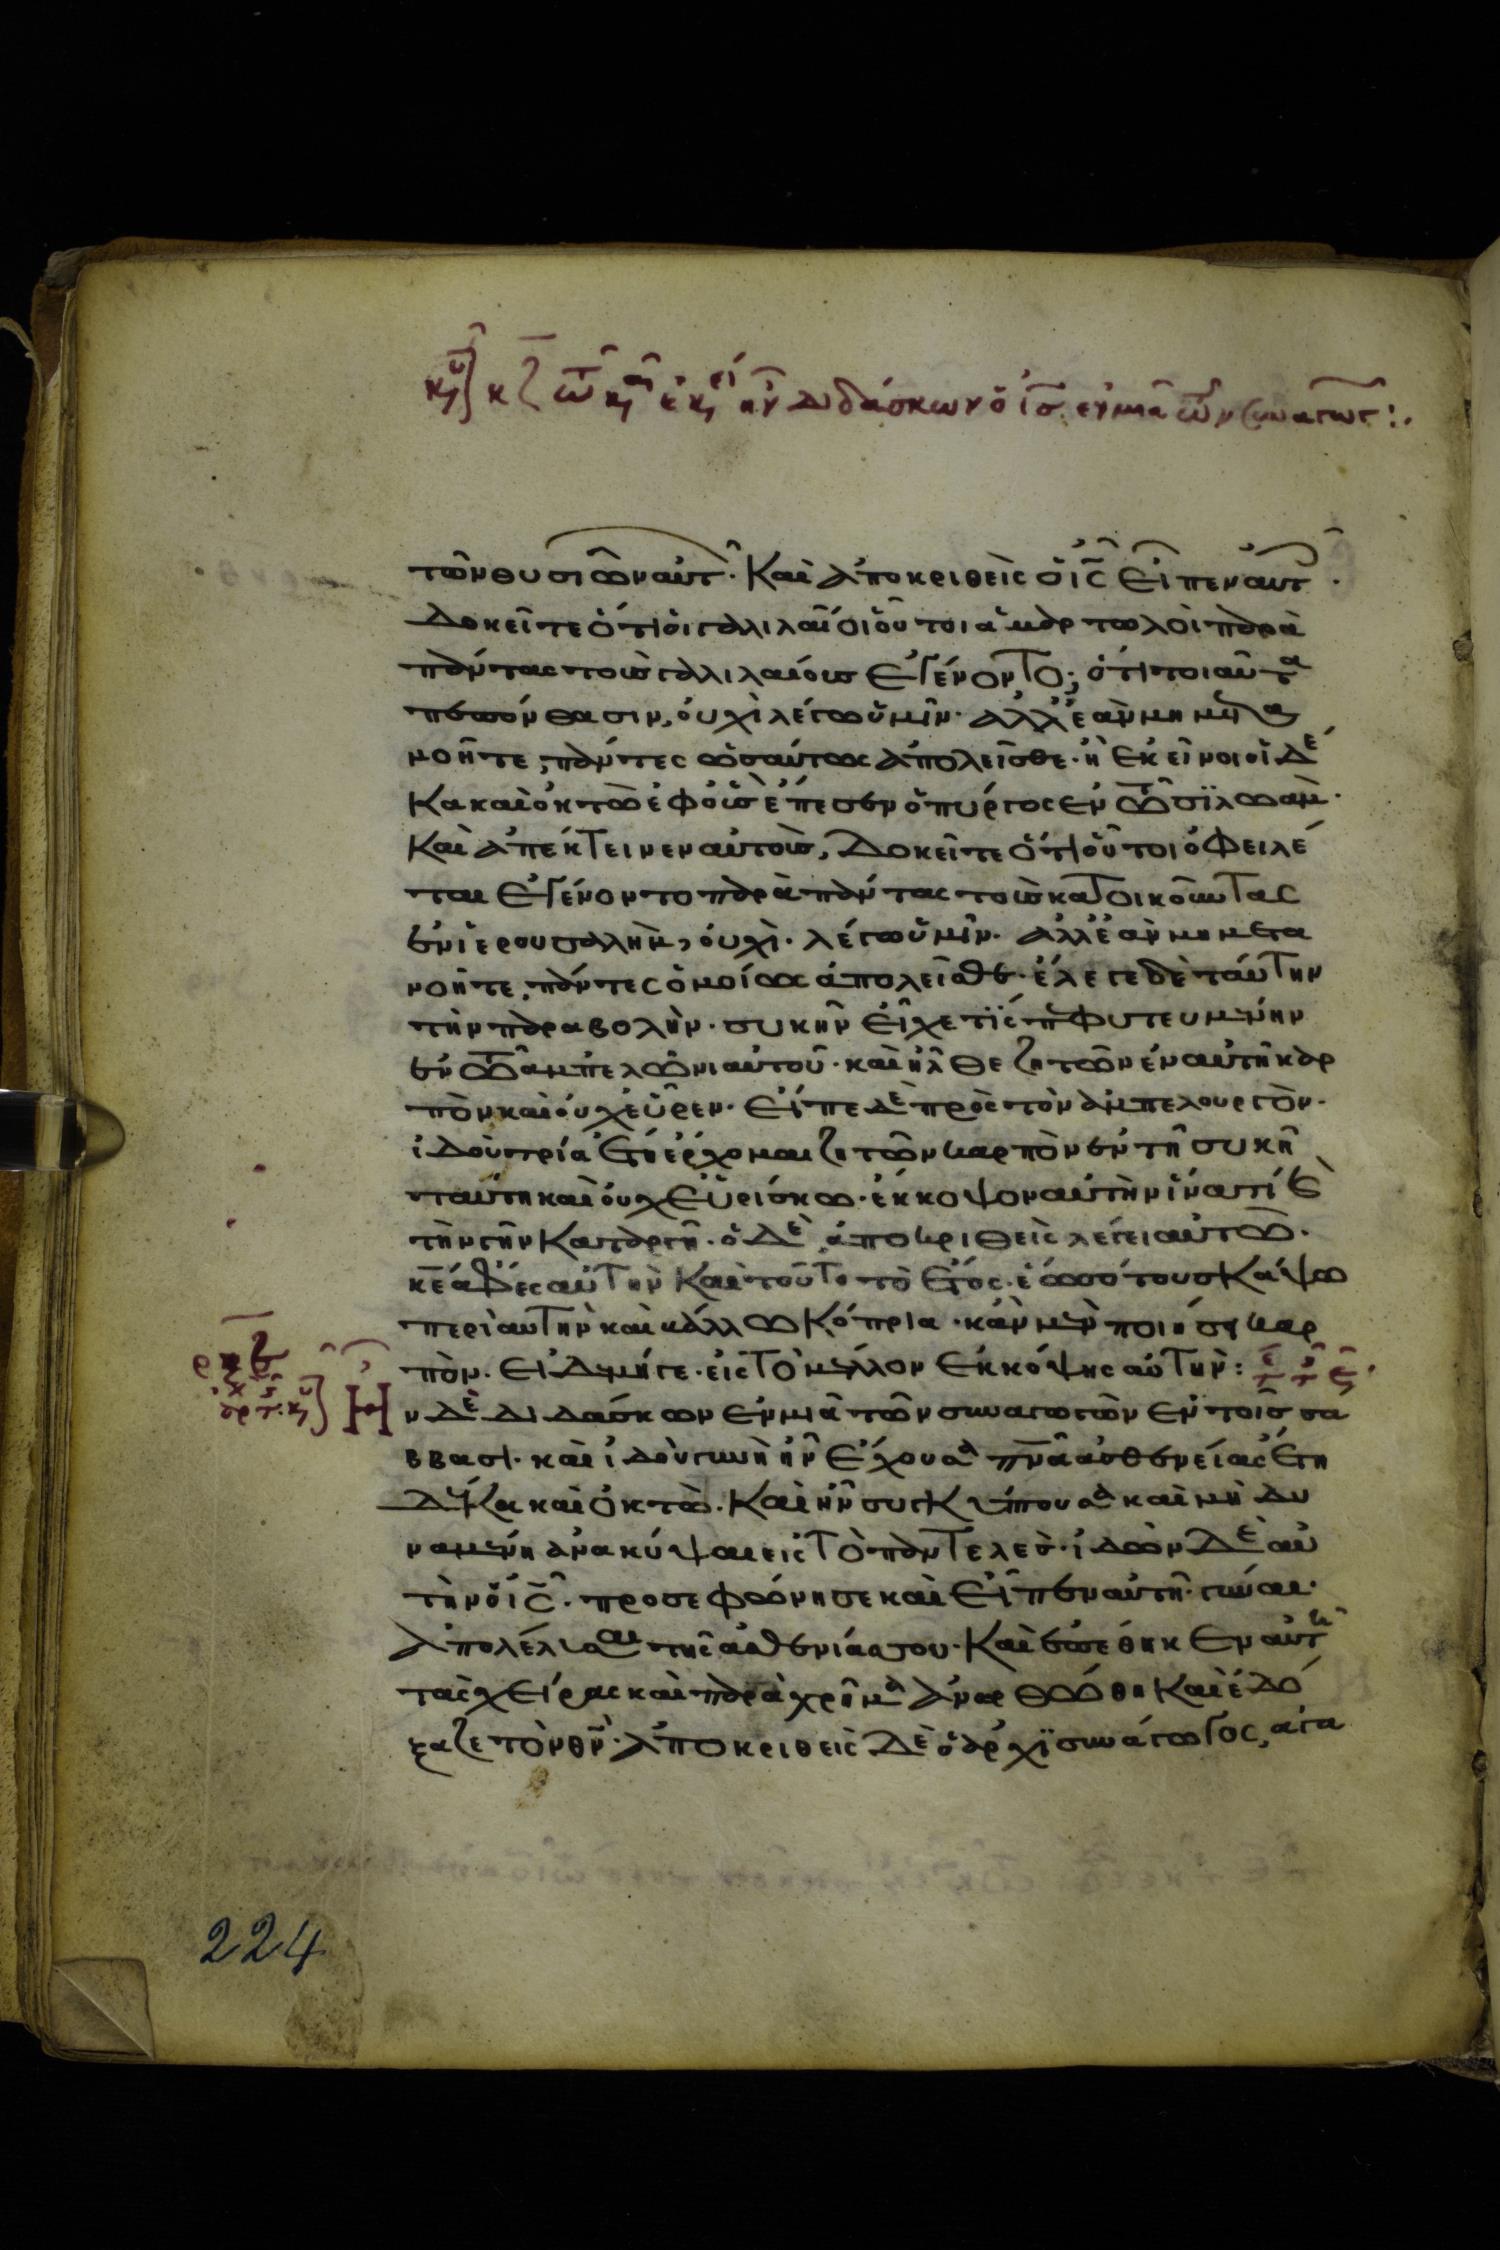 κζ τῶ κ ἐκ ἦν διδάσκων ὁ ισ ἐν μιᾶ τῶν συναγωγ:
τῶν θυσιῶν αὐτ. Καὶ ἀποκριθεὶς ὁ ις εἶπεν αὐτ.
δοκεῖτε ὅτι οἱ γαλιλαῖοι οὗτοι ἁμαρτωλοὶ παρὰ
πάντας τοὺς γαλιλαίους ἐγένοντο; ὅτι τοιαῦτα
πεπόνθασιν, οὐχὶ λέγω ὑμῖν. ἀλλ' ἐὰν μὴ μετα
νοῆτε, πάντες ὡσαύτως ἀπολεῖσθε. ἢ ἐκεῖνοι οἱ δέ
κα καὶ ὀκτὼ ἐφ' οὓς ἔπεσεν ὁ πύργος ἐν τῶ σϊλωὰμ.
καὶ ἀπέκτεινεν αὐτοὺς, δοκεῖτε ὅτι οὗτοι ὀφειλέ
ται ἐγένοντο παρὰ πάντας τοὺς κατοικοῦντας
ἐν ἱερουσαλὴμ, οὐχὶ. λέγω ὑμῖν. ἀλλ' ἐὰν μὴ μετα
νοῆτε, πάντες ὁμοίως ἀπολεῖσθε. ἔλεγε δὲ ταύτην
τὴν παραβολὴν. συκῆν εἶχε τϊς πεφυτευμένην
ἐν τῶ ἀμπελῶνι αὐτοῦ. καὶ ἦλθε ζητῶν ἐν αὐτῆ καρ
πὸν καὶ οὐχ εὗρεν. εἶπε δὲ πρὸς τὸν ἀμπελουργὸν.
ἰδοὺ τρία ἔτη ἔρχομαι ζητῶν καρπὸν ἐν τῆ συκῆ
ταύτη καὶ οὐχ εὑρίσκω. ἔκκοψον αὐτὴν ἱνατί κ
τὴν γῆν καταργῆ. ὁ δὲ ἀποκριθεὶς λέγει αὐτῶ.
κε ἄφες αὐτὴν καὶ τοῦτο τὸ ἔτος. ἕως ὅτου σκάψω
περὶ αὐτὴν καὶ βάλλω κόπρια. κἂν μὲν ποιήση καρ
πὸν. εἰ δὲ μήγε. εἰς τὸ μέλλον ἐκκόψης αὐτὴν:
Ἦν δὲ διδάσκων ἐν μιᾶ τῶν συναγωγῶν ἐν τοῖς σα
ββασι. καὶ ἰδοὺ γυνὴ ἦν ἔχουσα πνα ἀσθενείας ἔτη
δέκα καὶ ὀκτὼ. καὶ ἦν συγκύπτουσα καὶ μὴ δυ
ναμένη ἀνακύψαι εἰς τὸ παντελὲς. ἰδὼν δὲ αὐ
τὴν ὁ ις. προσεφώνησε καὶ εἶπεν αὐτῆ. γύναι.
ἀπολέλυσαι τῆς ἀσθενίας σου. καὶ ἐπέθηκεν αὐτῆ
τὰς χεῖρας καὶ παραχρῆμα ἀνορθώθη καὶ ἐδό
ξαζε τὸν θν. ἀποκριθεὶς δὲ ὁ ἀρχϊσυνάγωγος, ἀγα
224